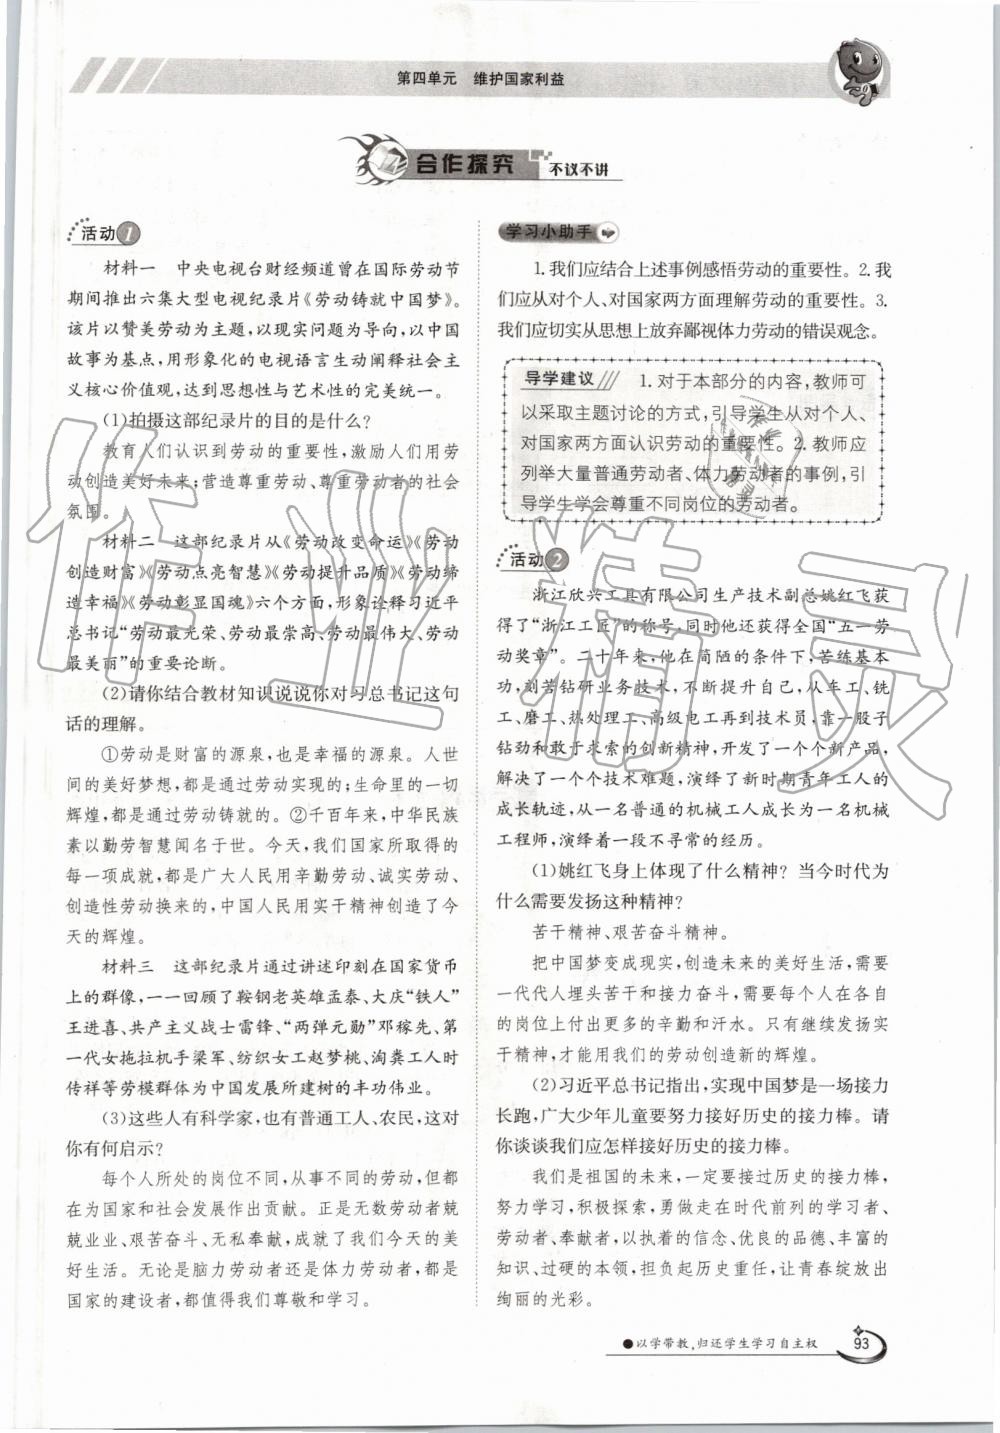 第四单元　维护国家利益
合作探究 不议不讲
活动1
材料一　中央电视台财经频道曾在国际劳动节
期间推出六集大型电视纪录片《劳动铸就中国梦》。
该片以赞美劳动为主题，以现实问题为导向，以中国
故事为基点，用形象化的电视语言生动阐释社会主
义核心价值观，达到思想性与艺术性的完美统一。
(1)拍摄这部纪录片的目的是什么?
教育人们认识到劳动的重要性，激励人们用劳
动创造美好未来;营造尊重劳动、尊重劳动者的社会
氛围。
材料二　这部纪录片从《劳动改变命运》《劳动
创造财富》《劳动点亮智慧》《劳动提升品质》《劳动缔
造幸福》《劳动彰显国魂》六个方面，形象诠释习近平
总书记“劳动最光荣、劳动最崇高、劳动最伟大、劳动
最美丽”的重要论断。
(2)请你结合教材知识说说你对习总书记这句
话的理解。
①劳动是财富的源泉，也是幸福的源泉。人世
间的美好梦想，都是通过劳动实现的;生命里的一切
辉煌，都是通过劳动铸就的。②千百年来，中华民族
素以勤劳智慧闻名于世。今天，我们国家所取得的
每一项成就，都是广大人民用辛勤劳动、诚实劳动、
创造性劳动换来的，中国人民用实干精神创造了今
天的辉煌。
材料三　这部纪录片通过讲述印刻在国家货币
上的群像，一一回顾了鞍钢老英雄孟泰、大庆“铁人”
王进喜、共产主义战士雷锋、“两弹元勋”邓稼先、第
一代女拖拉机手梁军、纺织女工赵梦桃、淘粪工人时
传祥等劳模群体为中国发展所建树的丰功伟业。
(3)这些人有科学家，也有普通工人、农民，这对
你有何启示?
每个人所处的岗位不同，从事不同的劳动，都是
在为国家和社会发展作出贡献。正是无数劳动者兢
兢业业、艰苦奋斗、无私奉献，成就了我们今天的美
好生活。无论是脑力劳动者还是体力劳动者，都是
国家的建设者，都值得我们尊敬和学习。
学习小助手
1.我们应结合上述事例感悟劳动的重要性。2.我
们应从对个人、对国家两方面理解劳动的重要性。3.
我们应切实从思想上放弃鄙视体力劳动的错误观念。
导学建议　1.对于本部分的内容，教师可
以采取主题讨论的方式，引导学生从对个人、
对国家两方面认识劳动的重要性。2.教师应
列举大量普通劳动者、体力劳动者的事例，引
导学生学会尊重不同岗位的劳动者。
活动2
浙江欣兴工具有限公司生产技术副总姚红飞获
得了“浙江工匠”的称号，同时他还获得全国“五一劳
动奖章”。二十年来，他在简陋的条件下，苦练基本
功，刻苦钻研业务技术，不断提升自己，从车工、铣
工、磨工、热处理工、高级电工再到技术员，靠一股子
钻劲和敢于求索的创新精神，开发了一个个新产品，
解决了一个个技术难题，演绎了新时期青年工人的
成长轨迹，从一名普通的机械工人成长为一名机械
工程师，演绎着一段不寻常的经历。
(1)姚红飞身上体现了什么精神? 当今时代为
什么需要发扬这种精神?
苦干精神、艰苦奋斗精神。
把中国梦变成现实，创造未来的美好生活，需要
一代代人埋头苦干和接力奋斗，需要每个人在各自
的岗位上付出更多的辛勤和汗水。只有继续发扬实
干精神，才能用我们的劳动创造新的辉煌。
(2)习近平总书记指出，实现中国梦是一场接力
长跑，广大少年儿童要努力接好历史的接力棒。请
你谈谈我们应怎样接好历史的接力棒。
我们是祖国的未来，一定要接过历史的接力棒，
努力学习，积极探索，勇做走在时代前列的学习者、
劳动者、奉献者，以执着的信念、优良的品德、丰富的
知识、过硬的本领，担负起历史重任，让青春绽放出
绚丽的光彩。
●以学带教，归还学生学习自主权
93
作业精灵